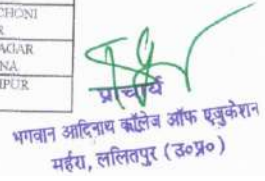 CHONI
R
AGAR
NA
IPUR
प्राचार्य
भगवान आदिनाथ कॉलेज ऑफ एजुकेशन
महर्रा, ललितपुर (उ०प्र०)